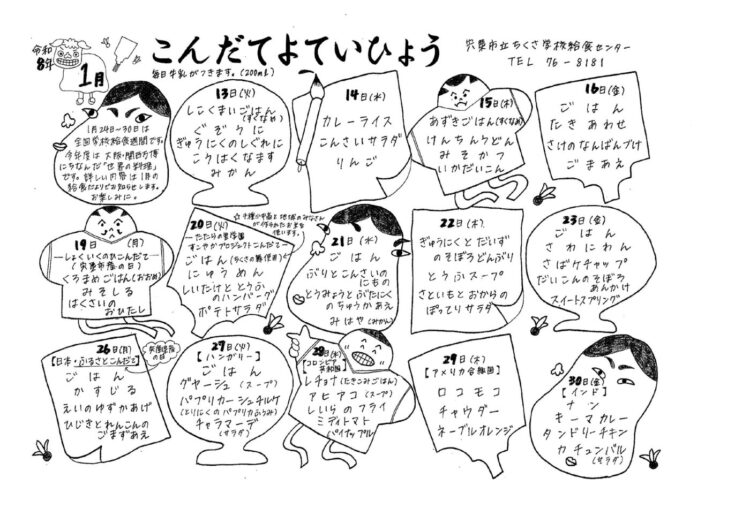 令和
8年
1月
こんだてよていひょう
宍粟市立ちくさ学校給食センター
TEL 76-8181
毎日牛乳がつきます。(200ml)
1月24日~30日は
全国学校給食週間です。
今年度は大阪・関西万博
にちなんだ「世界の料理」
です。詳しい内容は1月の
給食だよりでお知らせします。
お楽しみに。
13日(火)
しこくまいごはん
(すくなめ)
ぐぞうに
ぎゅうにくのしぐれに
こうはくなます
みかん
14日(水)
カレーライス
こんさいサラダ
りんご
15日(木)
あずきごはん(すくなめ)
けんちんうどん
みそかつ
いかだいこん
16日(金)
ごはん
たきあわせ
さけのなんばんづけ
ごまあえ
19日(月)
ーしょくいくのひこんだてー
(宍粟市産の日)
くろまめごはん(おおめ)
みそしる
はくさいの
おひたし
20日(火)
ーたたらの里学園
すこやかプロジェクトこんだてー
ごはん
にゅうめん
しいたけととうふ
のハンバーグ
ポテトサラダ
21日(水)
ごはん
ぶりとこんさいの
にもの
とうみょうとぶたにく
のちゅうかあえ
みはや(みかん)
22日(木)
ぎゅうにくとだいず
のそぼろどんぶり
とうふスープ
さといもとおからの
ぽってりサラダ
23日(金)
ごはん
さわにわん
さばケチャップ
だいこんのそぼろ
あんかけ
スイートスプリング
26日(月)
【日本・ふるさとこんだて】
ごはん
かすじる
えいのゆずかあげ
ひじきとれんこんの
ごまずあえ
27日(火)
【ハンガリー】
ごはん
グヤーシュ(スープ)
パプリカーシュチルケ
(とりにくのパプリカふうみ)
チャラマーデ
(サラダ)
28日(水)
【コロンビア
共和国】
レチョナ(たきこみごはん)
アヒアコ(スープ)
しいらのフライ
ミディトマト
パイナップル
29日(木)
【アメリカ合衆国】
ロコモコ
チャウダー
ネーブルオレンジ
30日(金)
【インド】
ナン
キーマカレー
タンドリーチキン
カチュンバル
(サラダ)